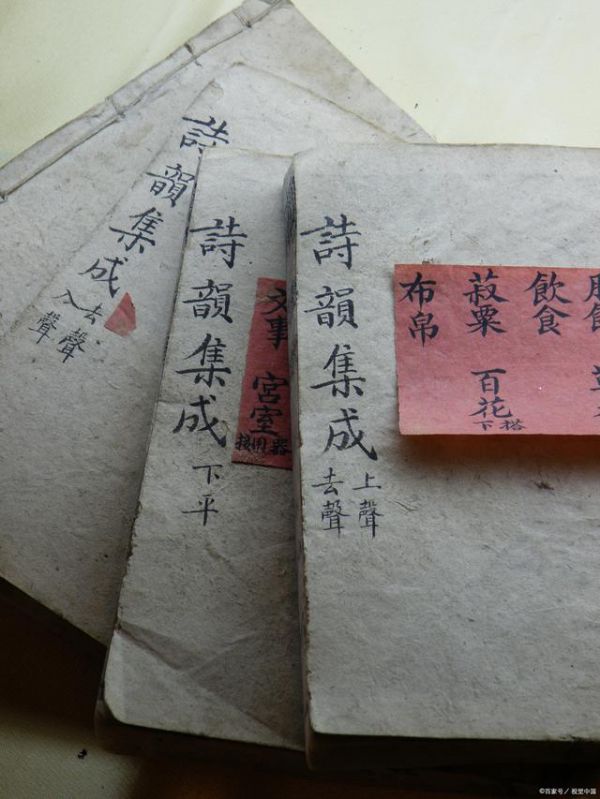 詩韻集成
去聲
入聲
詩韻集成
下平
文事 宮室
器用接
詩韻集成
上聲
去聲
飲食
菽粟 百花
布帛
©百家号/视觉中国